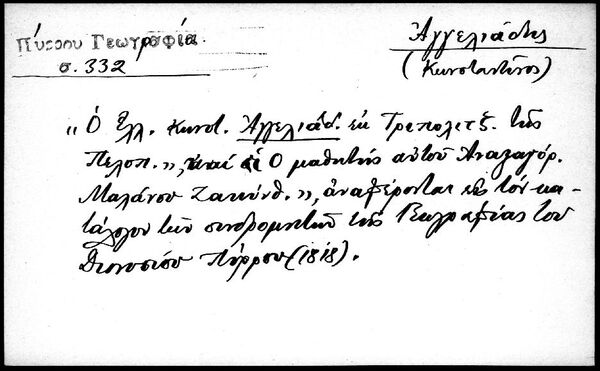 Πύρρου Γεωγραφία.
σ. 332
Ἀγγελιάδης
(Κωνσταντῖνος)
„Ὁ Ἐλλ. Κωνστ. Ἀγγελιάδ. ἐκ Τριπολιτζ. τῆς
Πελοπ.", καί Ὁ μαθητής αὐτοῦ Ἀναξαγόρ.
Ζακύνθ.", ἀναφέρονται εἰς τόν κα-
τάλογον τῶν συνδρομητῶν τῆς Γεωγραφίας τοῦ
Διονυσίου Πύρρου (1818).